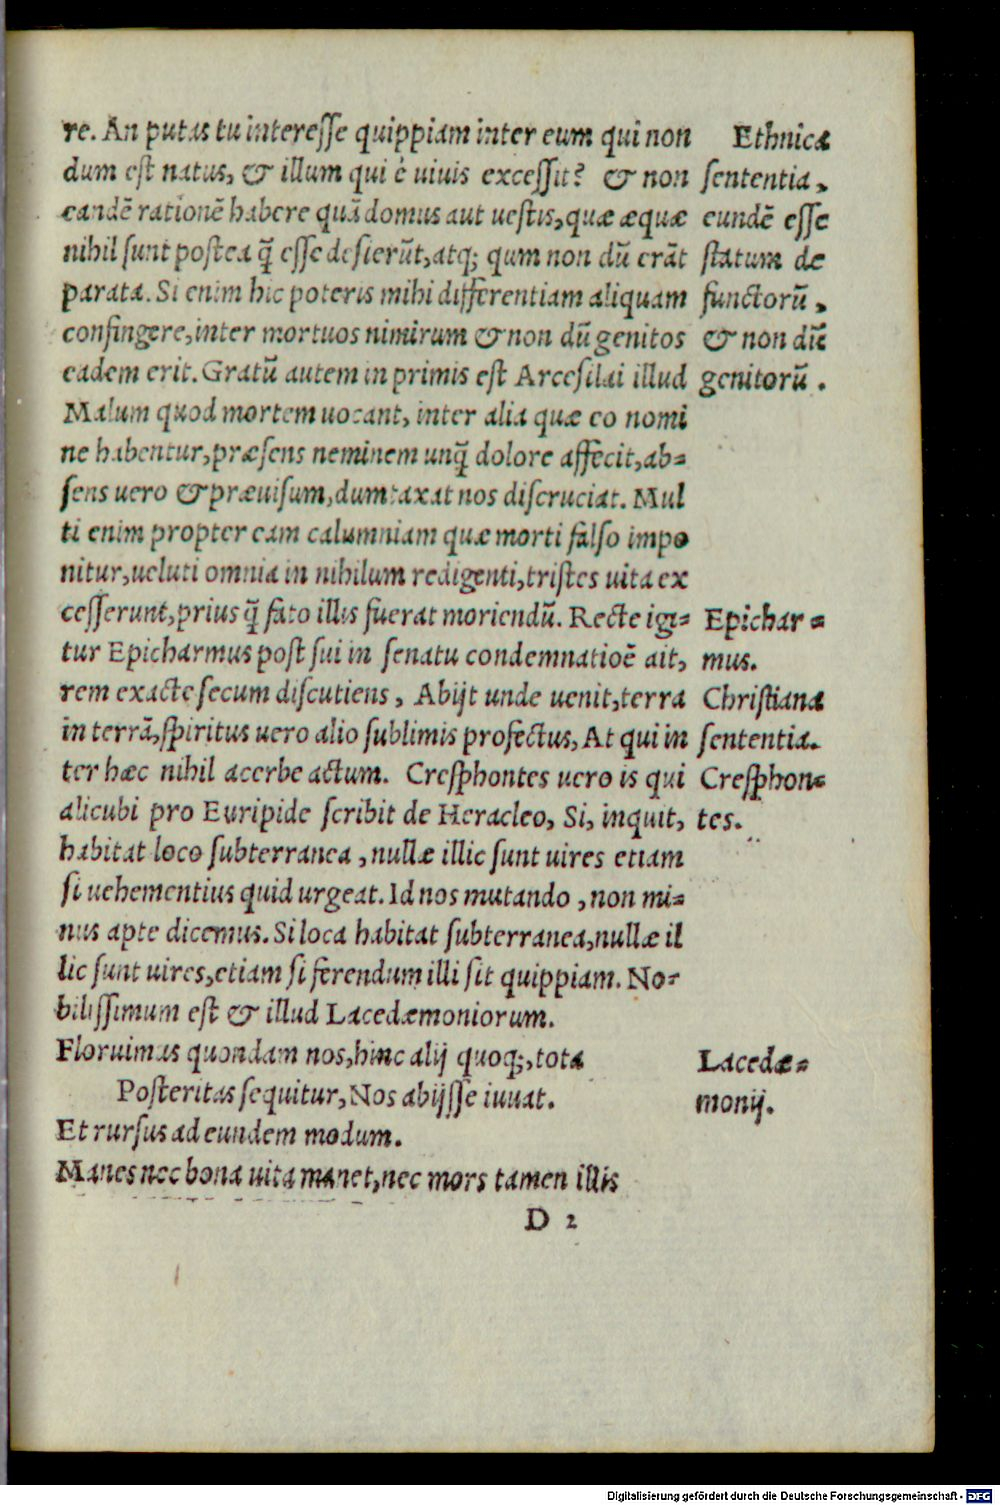 re. An putas tu interesse quippiam inter eum qui non
dum est natus, & illum qui è uiuis excessit? & non
eandē rationē habere quā domus aut uestis, quæ æquæ
nihil sunt postea q̃ esse desierūt, atq; qum non dū erāt
parata. Si enim hic poteris mihi differentiam aliquam
confingere, inter mortuos nimirum & non dū genitos
eadem erit. Gratū autem in primis est Arcesilai illud
Malum quod mortem uocant, inter alia quæ eo nomi
ne habentur, præsens neminem unq̃ dolore affecit, ab=
sens uero & præuisum, dumtaxat nos discruciat. Mul
ti enim propter eam calumniam quæ morti falso impo
nitur, ueluti omnia in nihilum redigenti, tristes uita ex
cesserunt, prius q̃ fato illis fuerat moriendū. Recte igi=
tur Epicharmus post sui in senatu condemnatioē ait,
rem exacte secum discutiens, Abijt unde uenit, terra
in terrā, spiritus uero alio sublimis profectus, At qui in
ter hæc nihil acerbe actum. Cresphontes uero is qui
alicubi pro Euripide scribit de Heracleo, Si, inquit,
habitat loco subterranea, nullæ illic sunt uires etiam
si uehementius quid urgeat. Id nos mutando, non mi=
nus apte dicemus. Si loca habitat subterranea, nullæ il
lic sunt uires, etiam si ferendum illi sit quippiam. No=
bilissimum est & illud Lacedæmoniorum.
Floruimus quondam nos, hinc alij quoq;, tota
Posteritas sequitur, Nos abijsse iuuat.
Et rursus ad eundem modum.
Manes nec bona uita manet, nec mors tamen illis
D 2
Ethnica
sententia,
eundē esse
statum de
functorū,
& non dū
genitorū.
Epichar=
mus.
Christiana
sententia.
Cresphon=
tes.
Lacedæ=
monij.
Digitalisierung gefördert durch die Deutsche Forschungsgemeinschaft - DFG